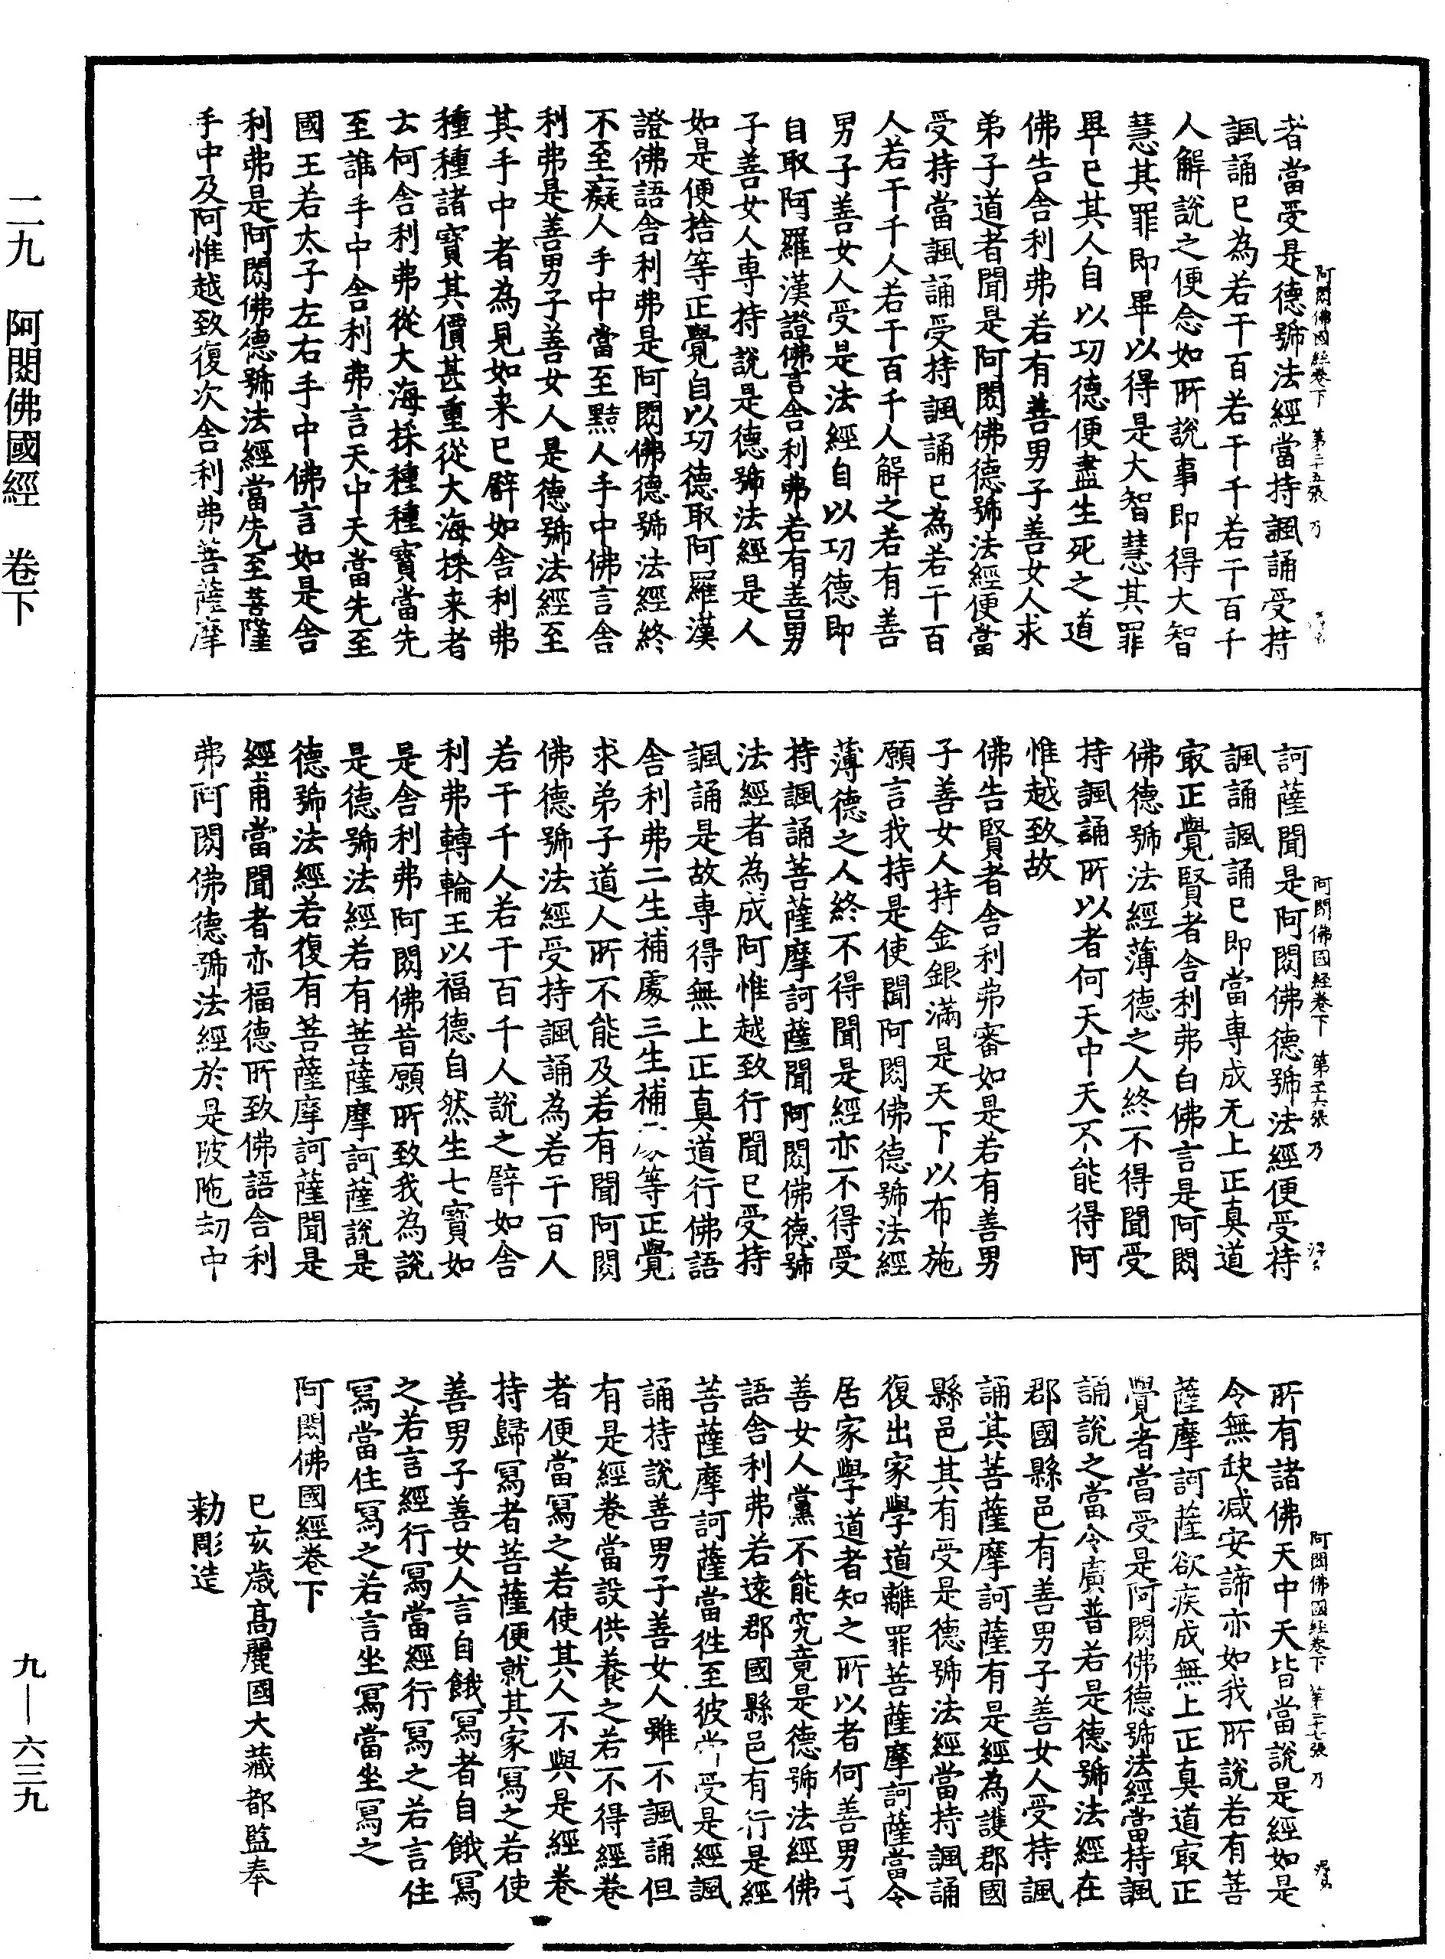 阿閦佛國經卷下 第二十五張 乃
者當受是德號法經當持諷誦受持
諷誦已為若干百若干千若干百千
人解說之便念如所說事即得大智
慧其罪即畢以得是大智慧其罪
畢已其人自以功德便盡生死之道
佛告舍利弗若有善男子善女人求
弟子道者聞是阿閦佛德號法經便當
受持當諷誦受持諷誦已為若干百
人若干千人若干百千人解之若有善
男子善女人受是法經自以功德即
自取阿羅漢證佛言舍利弗若有善男
子善女人專持說是德號法經是人
如是便捨等正覺自以功德取阿羅漢
證佛語舍利弗是阿閦佛德號法經終
不至癡人手中當至黠人手中佛言舍
利弗是善男子善女人是德號法經至
其手中者為見如来已譬如舍利弗
種種諸寶其價甚重從大海採来者
云何舍利弗從大海採種種寶當先
至誰手中舍利弗言天中天當先至
國王若太子左右手中佛言如是舍
利弗是阿閦佛德號法經當先至菩薩
手中及阿惟越致復次舍利弗菩薩摩
阿閦佛國經卷下 第二十六張 乃
訶薩聞是阿閦佛德號法經便受持
諷誦諷誦已即當專成无上正真道
㝡正覺賢者舍利弗白佛言是阿閦
佛德號法經薄德之人終不得聞受
持諷誦所以者何天中天不能得阿
惟越致故
佛告賢者舍利弗審如是若有善男
子善女人持金銀滿是天下以布施
願言我持是使聞阿閦佛德號法經
薄德之人終不得聞是經亦不得受
持諷誦菩薩摩訶薩聞阿閦佛德號
法經者為成阿惟越致行聞已受持
諷誦是故專得無上正真道行佛語
舍利弗二生補處三生補處等正覺
求弟子道人所不能及若有聞阿閦
佛德號法經受持諷誦為若干百人
若干千人若干百千人說之譬如舍
利弗轉輪王以福德自然生七寶如
是舍利弗阿閦佛昔願所致我為說
是德號法經若有菩薩摩訶薩說是
德號法經若復有菩薩摩訶薩聞是
經甫當聞者亦福德所致佛語舍利
弗阿閦佛德號法經於是陂陁劫中
阿閦佛國經卷下 第二十七張 乃
所有諸佛天中天皆當說是經如是
令無缺減安諦亦如我所說若有菩
薩摩訶薩欲疾成無上正真道㝡正
覺者當受是阿閦佛德號法經當持諷
誦說之當令廣普若是德號法經在
郡國縣邑有善男子善女人受持諷
誦其菩薩摩訶薩有是經為護郡國
縣邑其有受是德號法經當持諷誦
復出家學道離罪菩薩摩訶薩當令
居家學道者知之所以者何善男子
善女人黨不能究竟是德號法經佛
語舍利弗若遠郡國縣邑有行是經
菩薩摩訶薩當往至彼當受是經諷
誦持說善男子善女人雖不諷誦但
有是經卷當設供養之若不得經卷
者便當寫之若使其人不與是經卷
持歸寫者菩薩便就其家寫之若使
善男子善女人言自餓寫者自餓寫
之若言經行寫當經行寫之若言住
寫當住寫之若言坐寫當坐寫之
阿閦佛國經卷下
己亥歲高麗國大藏都監奉
勅彫造
二九 阿閦佛國經 卷下
九—六三九